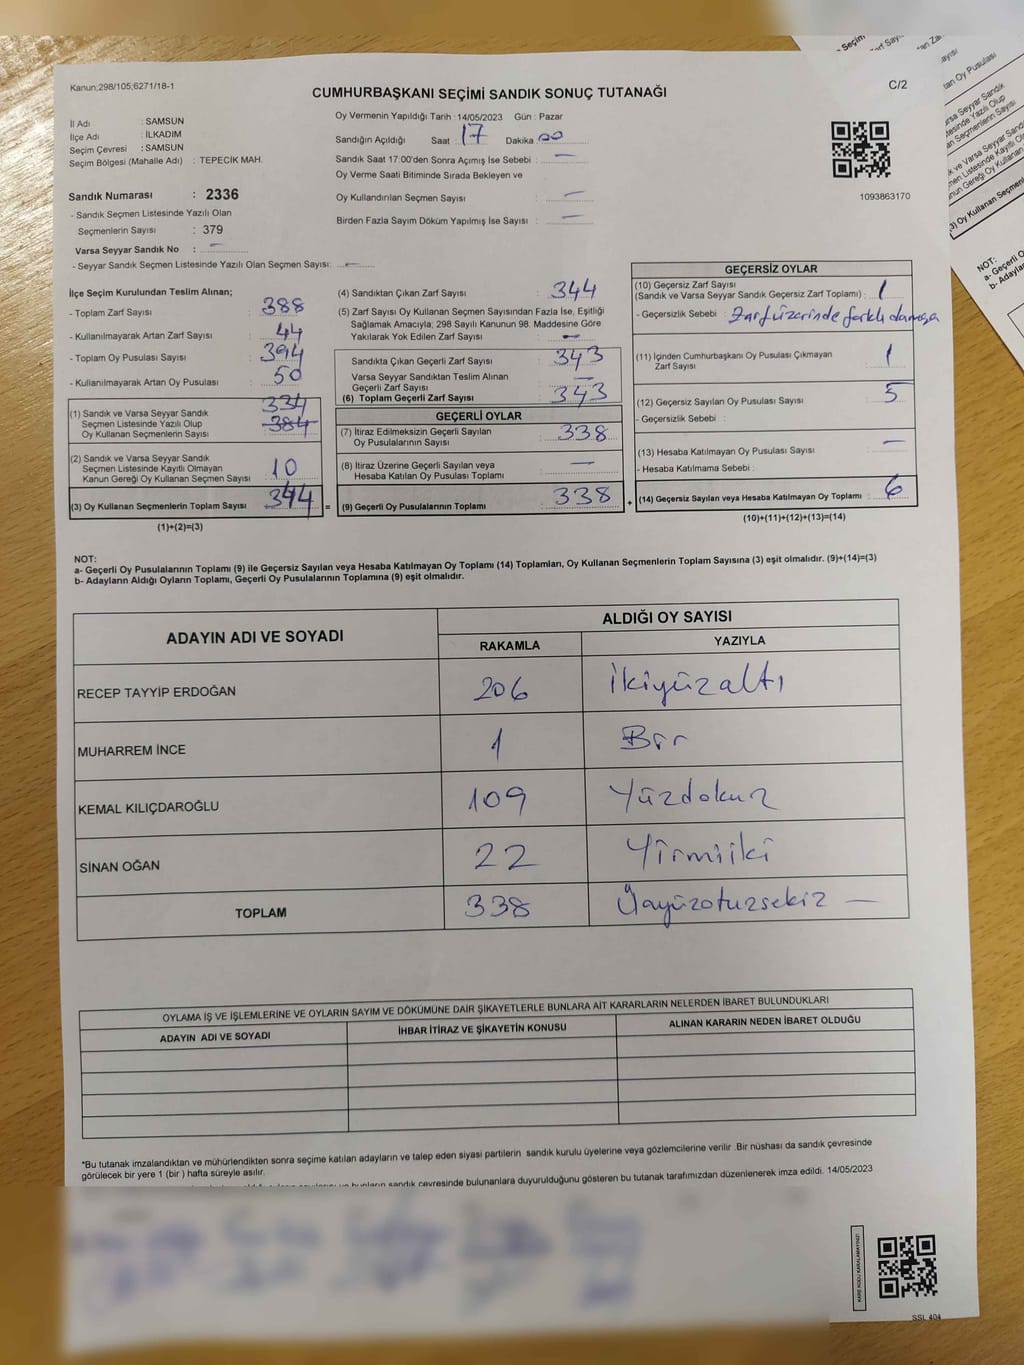 Kanun;298/105;6271/18-1
C/2
CUMHURBAŞKANI SEÇİMİ SANDIK SONUÇ TUTANAĞI
İl Adı : SAMSUN
İlçe Adı : İLKADIM
Seçim Çevresi : SAMSUN
Seçim Bölgesi (Mahalle Adı) : TEPECİK MAH.
Sandık Numarası : 2336
- Sandık Seçmen Listesinde Yazılı Olan
Seçmenlerin Sayısı : 379
Varsa Seyyar Sandık No : —
- Seyyar Sandık Seçmen Listesinde Yazılı Olan Seçmen Sayısı: —
Oy Vermenin Yapıldığı Tarih : 14/05/2023 Gün : Pazar
Sandığın Açıldığı Saat : 17 Dakika : 00
Sandık Saat 17:00'den Sonra Açımış İse Sebebi : —
Oy Verme Saati Bitiminde Sırada Bekleyen ve
Oy Kullandırılan Seçmen Sayısı : —
Birden Fazla Sayım Döküm Yapılmış İse Sayısı : —
1093863170
İlçe Seçim Kurulundan Teslim Alınan;
- Toplam Zarf Sayısı : 388
- Kullanılmayarak Artan Zarf Sayısı : 44
- Toplam Oy Pusulası Sayısı : 394
- Kullanılmayarak Artan Oy Pusulası : 50
334
(1) Sandık ve Varsa Seyyar Sandık
Seçmen Listesinde Yazılı Olup : 384
Oy Kullanan Seçmenlerin Sayısı
(2) Sandık ve Varsa Seyyar Sandık
Seçmen Listesinde Kayıtlı Olmayan : 10
Kanun Gereği Oy Kullanan Seçmen Sayısı
(3) Oy Kullanan Seçmenlerin Toplam Sayısı : 344 =
(1)+(2)=(3)
(4) Sandıktan Çıkan Zarf Sayısı : 344
(5) Zarf Sayısı Oy Kullanan Seçmen Sayısından Fazla İse, Eşitliği
Sağlamak Amacıyla; 298 Sayılı Kanunun 98. Maddesine Göre
Yakılarak Yok Edilen Zarf Sayısı : —
Sandıkta Çıkan Geçerli Zarf Sayısı : 343
Varsa Seyyar Sandıktan Teslim Alınan
Geçerli Zarf Sayısı : —
(6) Toplam Geçerli Zarf Sayısı : 343
GEÇERLİ OYLAR
(7) İtiraz Edilmeksizin Geçerli Sayılan
Oy Pusulalarının Sayısı : 338
(8) İtiraz Üzerine Geçerli Sayılan veya
Hesaba Katılan Oy Pusulası Toplamı : —
(9) Geçerli Oy Pusulalarının Toplamı : 338 +
GEÇERSİZ OYLAR
(10) Geçersiz Zarf Sayısı
(Sandık ve Varsa Seyyar Sandık Geçersiz Zarf Toplamı) : 1
- Geçersizlik Sebebi : Zarf üzerinde farklı damga
(11) İçinden Cumhurbaşkanı Oy Pusulası Çıkmayan
Zarf Sayısı : 1
(12) Geçersiz Sayılan Oy Pusulası Sayısı : 5
- Geçersizlik Sebebi :
(13) Hesaba Katılmayan Oy Pusulası Sayısı : —
- Hesaba Katılmama Sebebi :
(14) Geçersiz Sayılan veya Hesaba Katılmayan Oy Toplamı : 6
(10)+(11)+(12)+(13)=(14)
NOT:
a- Geçerli Oy Pusulalarının Toplamı (9) ile Geçersiz Sayılan veya Hesaba Katılmayan Oy Toplamı (14) Toplamları, Oy Kullanan Seçmenlerin Toplam Sayısına (3) eşit olmalıdır. (9)+(14)=(3)
b- Adayların Aldığı Oyların Toplamı, Geçerli Oy Pusulalarının Toplamına (9) eşit olmalıdır.
ADAYIN ADI VE SOYADI
ALDIĞI OY SAYISI
RAKAMLA YAZIYLA
RECEP TAYYİP ERDOĞAN 206 İkiyüzaltı
MUHARREM İNCE 1 Bir
KEMAL KILIÇDAROĞLU 109 Yüzdokuz
SİNAN OĞAN 22 Yirmiiki
TOPLAM 338 Üçyüzotuzsekiz —
OYLAMA İŞ VE İŞLEMLERİNE VE OYLARIN SAYIM VE DÖKÜMÜNE DAİR ŞİKAYETLERLE BUNLARA AİT KARARLARIN NELERDEN İBARET BULUNDUKLARI
ADAYIN ADI VE SOYADI İHBAR İTİRAZ VE ŞİKAYETİN KONUSU ALINAN KARARIN NEDEN İBARET OLDUĞU
*Bu tutanak imzalandıktan ve mühürlendikten sonra seçime katılan adayların ve talep eden siyasi partilerin sandık kurulu üyelerine veya gözlemcilerine verilir .Bir nüshası da sandık çevresinde
görülecek bir yere 1 (bir ) hafta süreyle asılır.
sandık çevresinde bulunanlara duyurulduğunu gösteren bu tutanak tarafımızdan düzenlenerek imza edildi. 14/05/2023
KARE KODU KARALAMAYINIZ!
SSL 404